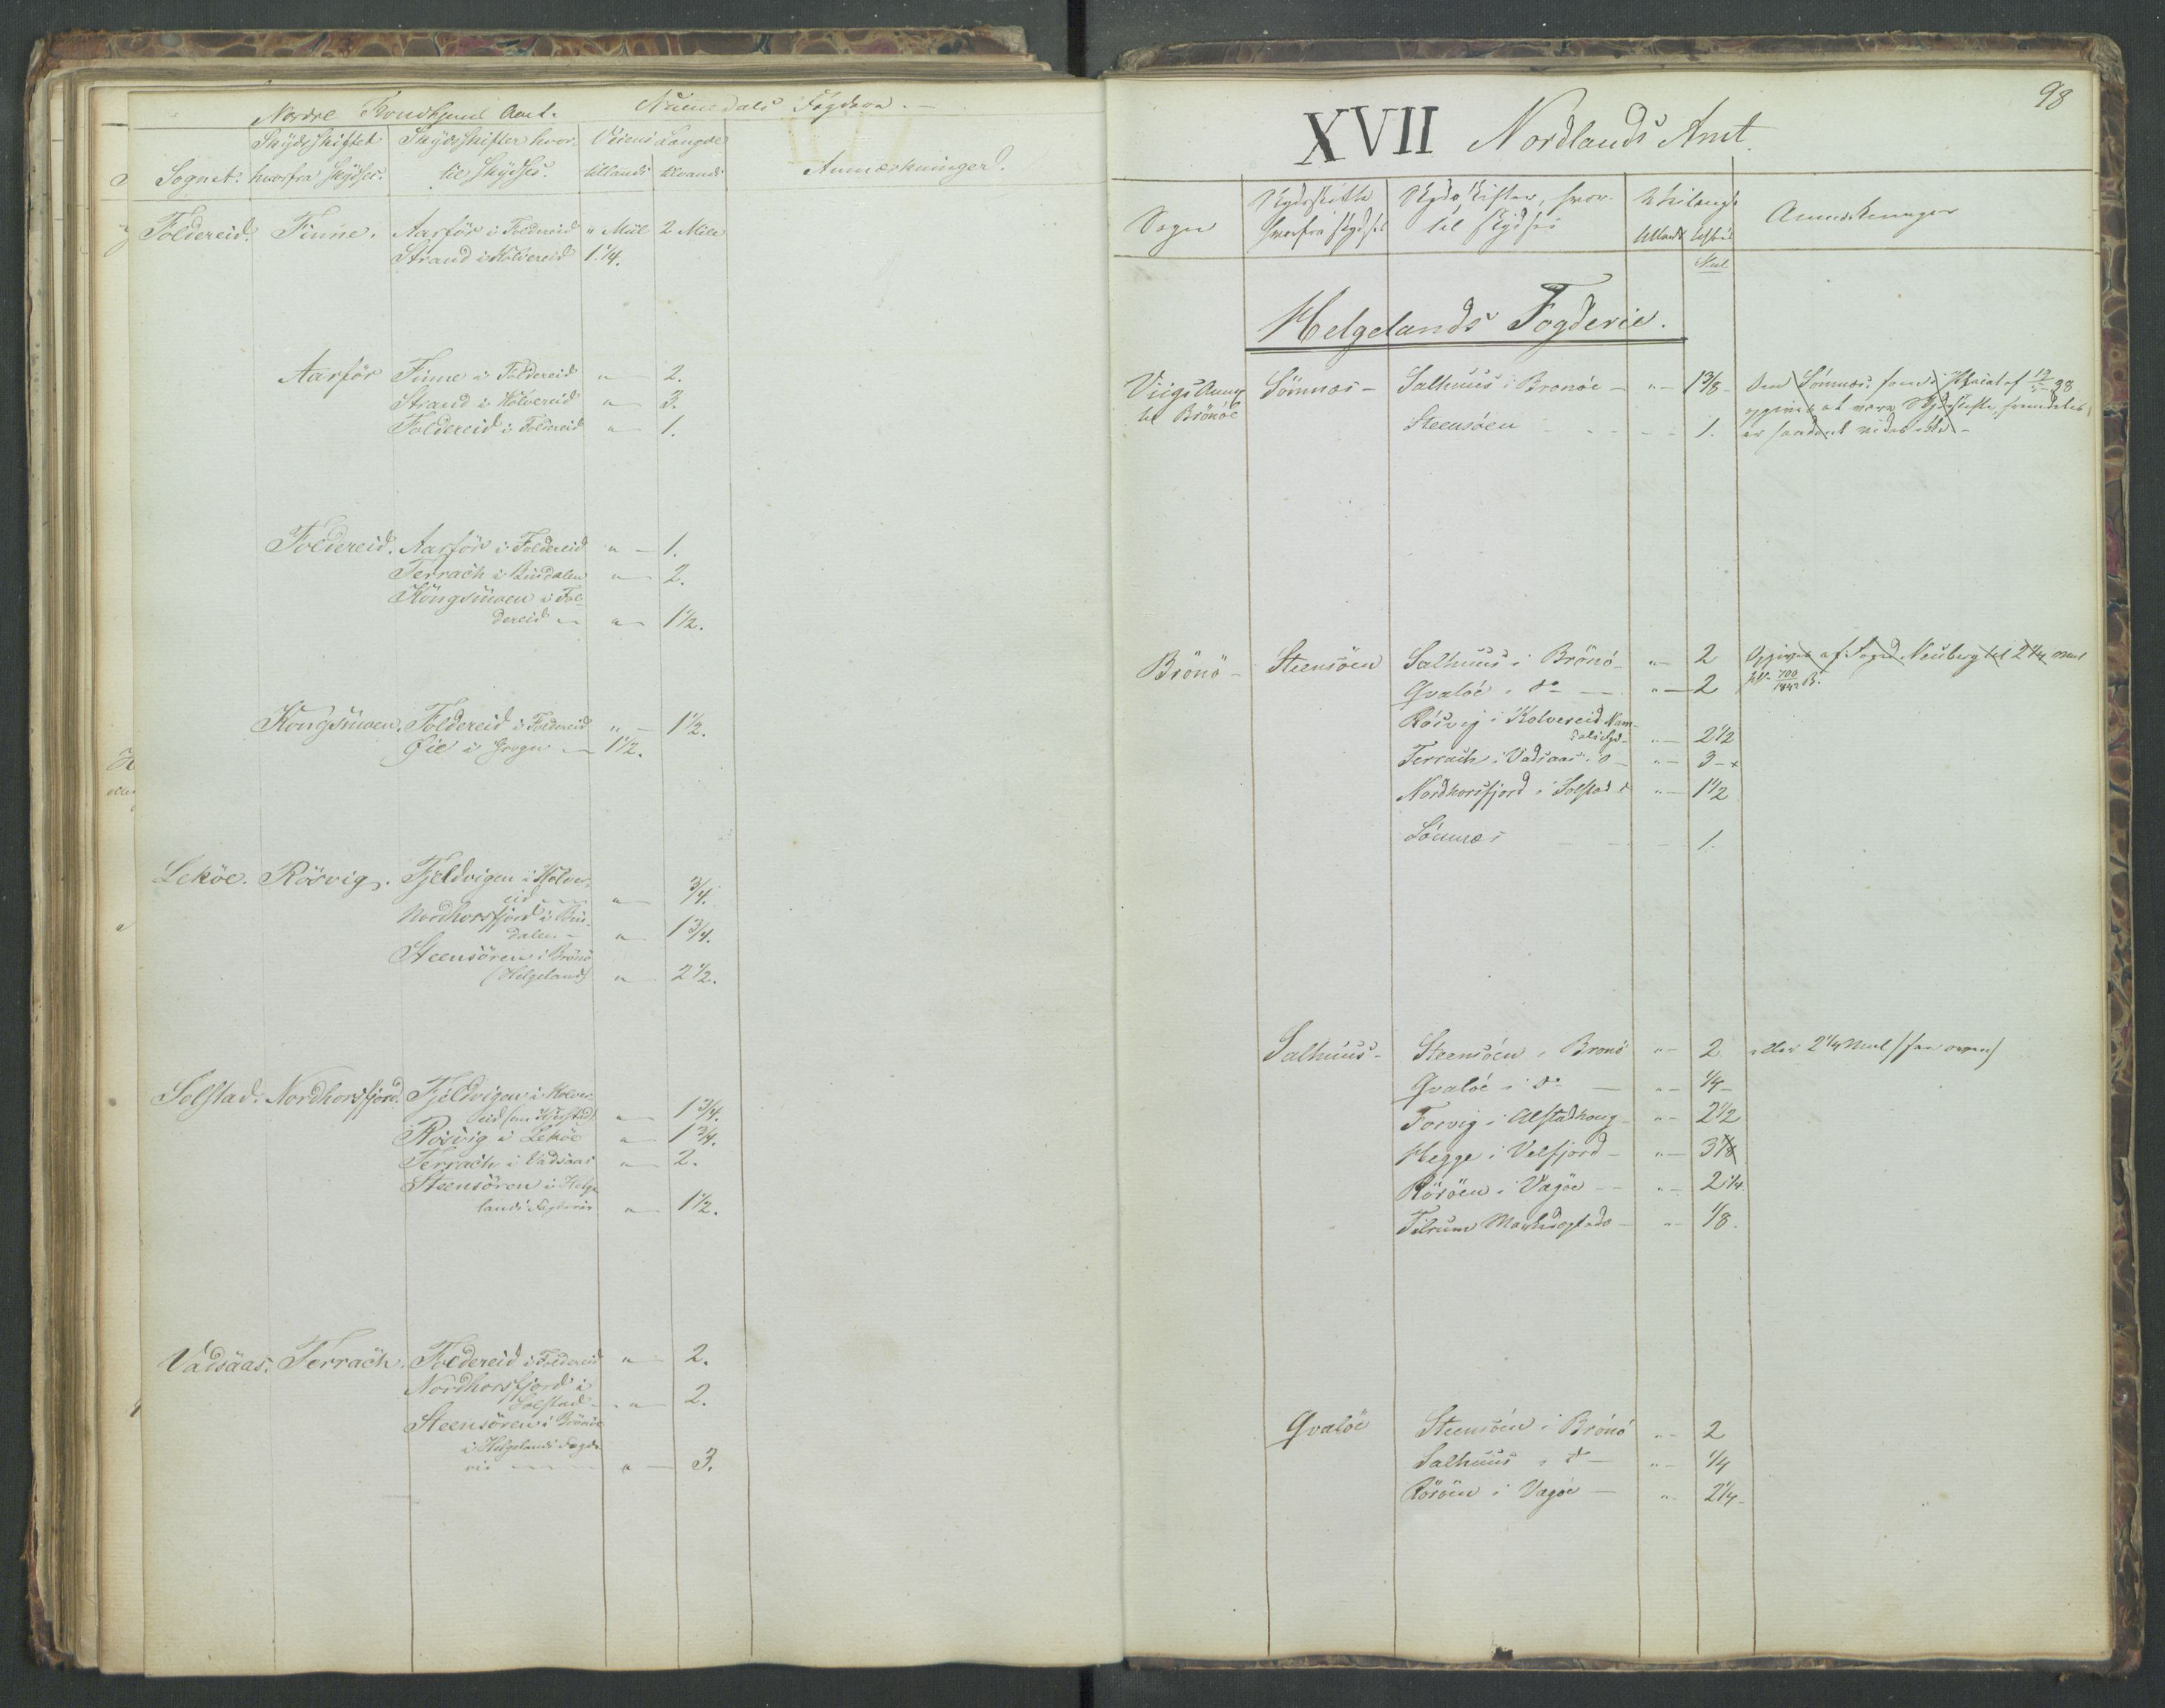 Nordre Trondhjems Amt. Numedals Fogderie.
Sognet. Skydsskiftet hvorfra skydses. Skydsskifter hvortil skydses. Veiens Længde tillands tilvands Anmærkninger.
Foldereid. Finne. Aarför i Foldereid " Miil 2 Mile
Strand i Kolvereid 1 1/4.
Aarför Finne i Foldereid " — 2.
Strand i Kolvereid " — 3.
Foldereid i Foldereid " — 1.
Foldereid. Aarför i Foldereid " — 1.
Terrach i Bindalen " — 2.
Kongsmoen i Fol-
dereid — " — 1 1/2.
Kongsmoen. Foldereid i Foldereid " — 1 1/2.
Öie i Grogn — 1 1/2.
Leköe. Rörvig. Fjeldvigen i Kolver-
eid — " — 3/4.
Nordhorsfjord i Bin-
dalen — " — 1 3/4.
Steensören i Brönö
(Helgeland) " — 2 1/2.
Solstad. Nordhorsfjord. Fjeldvigen i Kolver-
eid " — 1 3/4.
Rörvig i Leköe " — 1 3/4.
Terrach i Vadsaas " — 2.
Steensören i Helge-
lands Fogderie " — 1 1/2.
Vadsaas. Terrach. Foldereid i Foldereid " — 2.
Nordhorsfjord i
Solstad — " — 2.
Steensören i Brönöe
i Helgelands Fogde-
rie — " — 3.
98
XVII Nordlands Amt.
Sogn Skydsskifte hvorfra skydses Skydsskifter, hvor-
til skydses tillands Anmærkninger
Miil
Helgelands Fogderie.
Viigs Annex Sömnæs — Salhuus i Bronöe — " — 1 3/8 — Den Sömnæs, som i af 12/ 38
til Brönöe Steensöen — — 1. opgives at være Skydsskifte, fremdeles
er saadant vides ikke —
Brönö — Steensöen Salhuus i Brönö — " — 2 Opgives af Foged Neuberg til 2 1/4 Miil
Qvalöe i do — " — 2 700/1842 B.
Rörvig i Kolvereid Nam-
dals Fgd. — " — 2 1/2
Terrach i Vadsaas i do — " — 3 — x
Nordhorsfjord i Solstad do " — 1 1/2
Sömnæs — — 1.
Salhuus — Steensöen i Bronö " — 2 eller 2 1/4 Miil (see oven)
Qvalöe i do — " — 1/4 —
Forvig i Alstadhoug — " — 2 1/2
Hegge i Velfjord — " — 3 1/8
Röröen i Vegöe — " — 2 1/4.
Tilrum Markedsplads — " — 1/8.
Qvalöe Steensöen i Brönö " — 2
Salhuus i do — " — 1/4
Röröen i Vegöe — " — 2 1/4 —